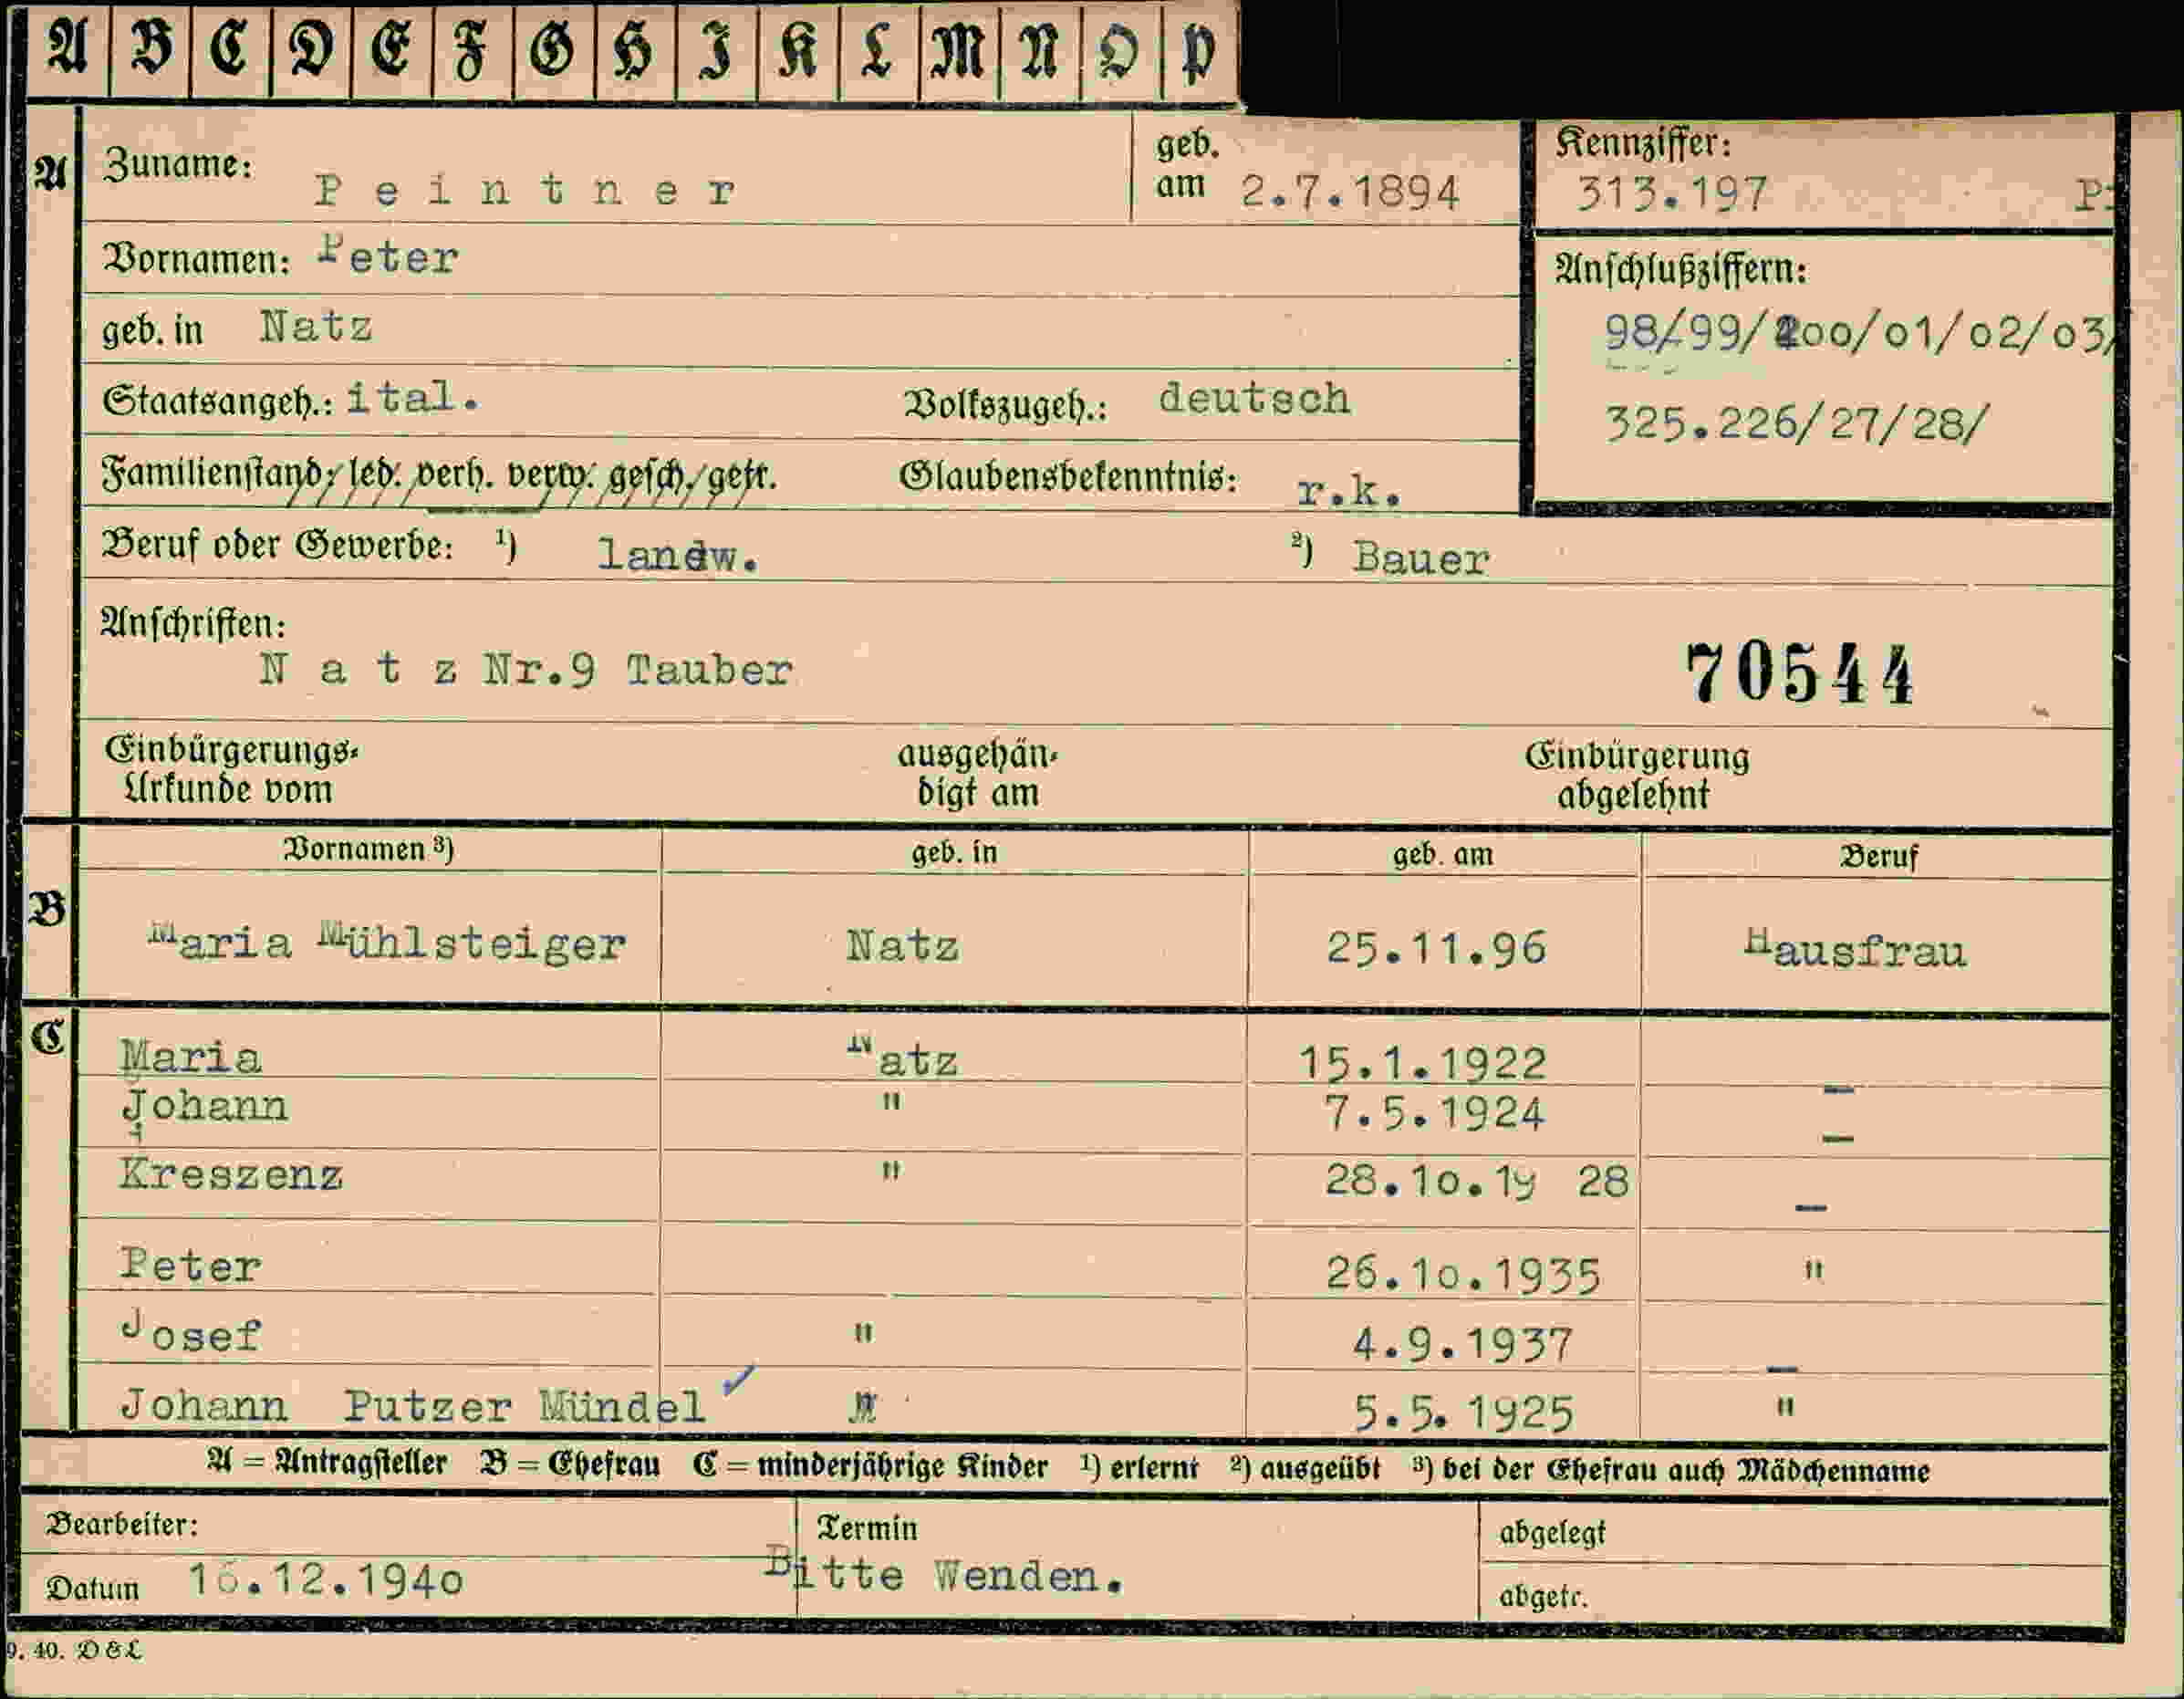 A B C D E F G H I K L M N O P
A Zuname: Peintner geb. am 2.7.1894 Kennziffer: 313.197
Vornamen: Peter
Anschlußziffern:
geb. in Natz 98/99/200/o1/o2/o3/
Staatsangeh.: ital. Volkszugeh.: deutsch 325.226/27/28/
Familienstand: led. verh. verw. gesch. getr. Glaubensbekenntnis: r.k.
Beruf oder Gewerbe: 1) landw. 2) Bauer
Anschriften:
Natz Nr.9 Tauber 70544
Einbürgerungs- ausgehän- Einbürgerung
Urkunde vom digt am abgelehnt
Vornamen 3) geb. in geb. am Beruf
B Maria Mühlsteiger Natz 25.11.96 Hausfrau
C Maria Natz 15.1.1922 –
Johann " 7.5.1924 –
Kreszenz " 28.1o.19 28 –
Peter 26.1o.1935 "
Josef " 4.9.1937 –
Johann Putzer Mündel " 5.5.1925 "
A = Antragsteller B = Ehefrau C = minderjährige Kinder 1) erlernt 2) ausgeübt 3) bei der Ehefrau auch Mädchenname
Bearbeiter: Termin abgelegt
Datum 16.12.194o Bitte Wenden. abgetr.
9. 40. D & L